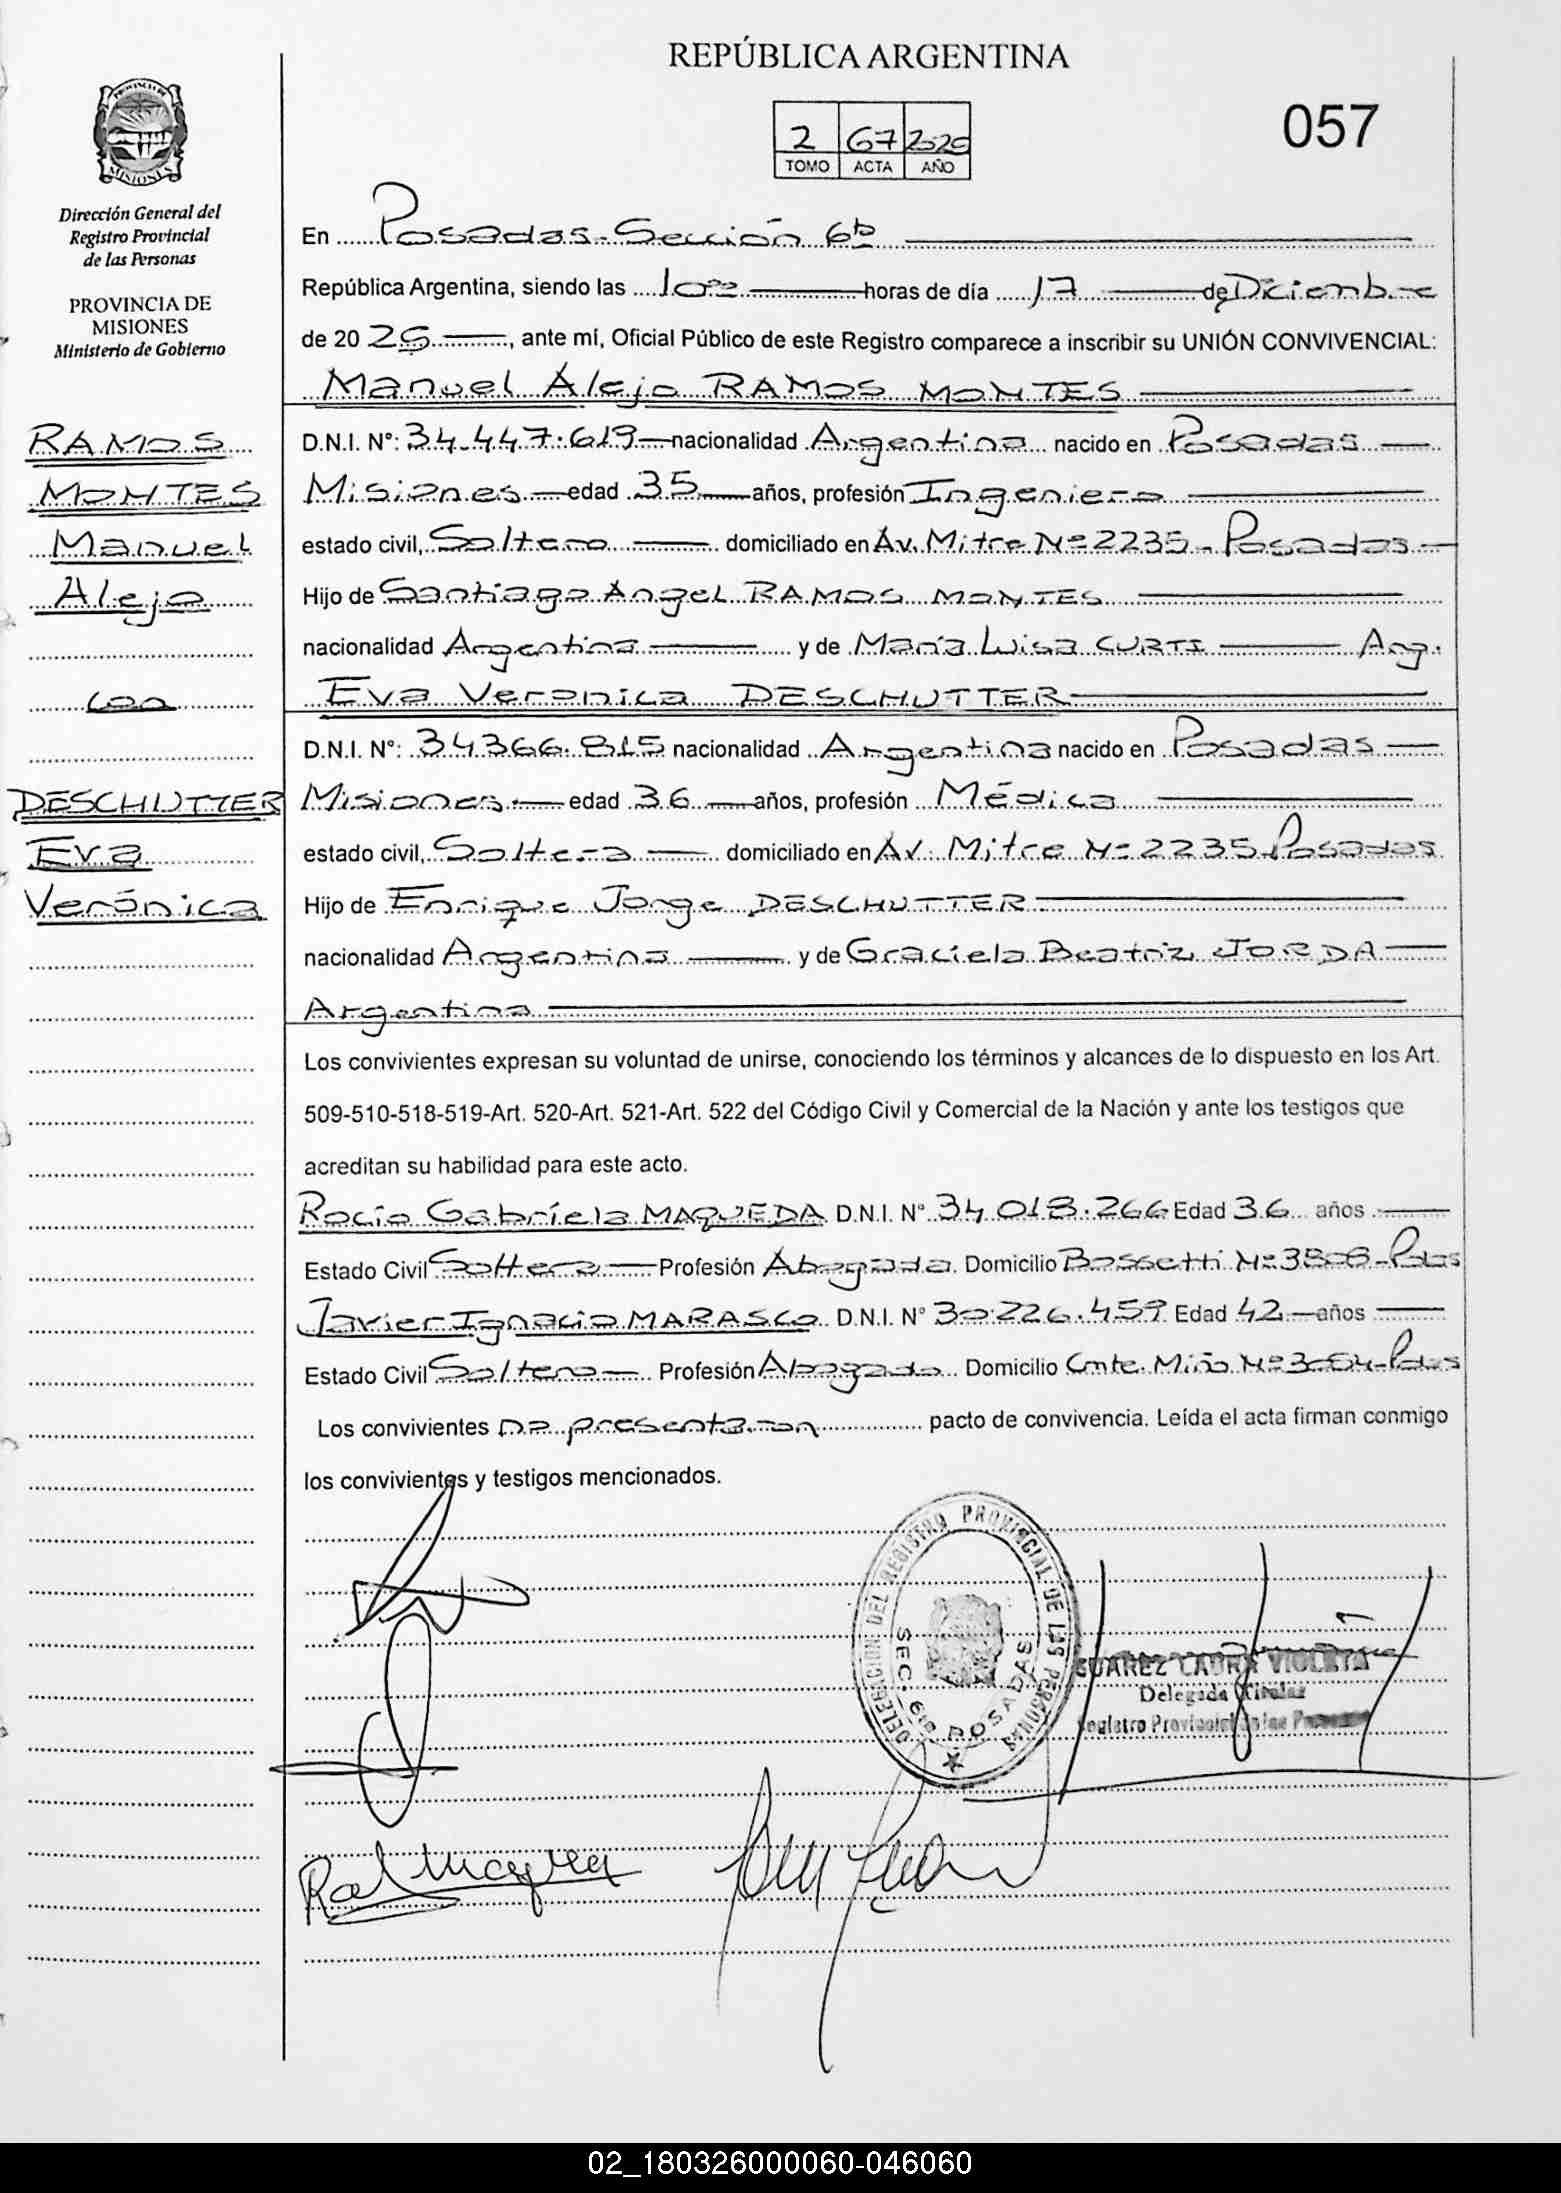 REPÚBLICA ARGENTINA
057
2 67
TOMO ACTA AÑO
PROVINCIA DE
MISIONES
Dirección General del
Registro Provincial
de las Personas
PROVINCIA DE
MISIONES
Ministerio de Gobierno
RAMOS
MONTES
Manuel
Alejo
con
DESCHUTTER
Eva
Verónica
En Posadas - Sección 6ta
República Argentina, siendo las 10 horas de día 17 de Diciembre
de 20 25, ante mí, Oficial Público de este Registro comparece a inscribir su UNIÓN CONVIVENCIAL:
Manuel Alejo RAMOS MONTES
D.N.I. Nº: 34.447.619 nacionalidad Argentina nacido en Posadas
Misiones edad 35 años, profesión Ingeniero
estado civil, Soltero domiciliado en Av. Mitre Nº 2235 - Posadas
Hijo de Santiago Angel RAMOS MONTES
nacionalidad Argentina y de María Luisa CURTI Arg.
Eva Veronica DESCHUTTER
D.N.I. Nº: 34.366.815 nacionalidad Argentina nacido en Posadas
Misiones edad 36 años, profesión Médica
estado civil, Soltera domiciliado en Av. Mitre Nº 2235 Posadas
Hijo de Enrique Jorge DESCHUTTER
nacionalidad Argentina y de Graciela Beatriz JORDA
Argentina
Los convivientes expresan su voluntad de unirse, conociendo los términos y alcances de lo dispuesto en los Art.
509-510-518-519-Art. 520-Art. 521-Art. 522 del Código Civil y Comercial de la Nación y ante los testigos que
acreditan su habilidad para este acto.
Rocío Gabriela MAQUEDA D.N.I. Nº 34.018.266 Edad 36 años
Estado Civil Soltera Profesión Abogada Domicilio Bossetti Nº - Pdas
Javier Ignacio MARASCO D.N.I. Nº 30.226.459 Edad 42 años
Estado Civil Soltero Profesión Abogado Domicilio Cmte. Miño Nº - Pdas
Los convivientes no presentaron pacto de convivencia. Leída el acta firman conmigo
los convivientes y testigos mencionados.
DELEGACION DEL REGISTRO PROVINCIAL DE LAS PERSONAS
SEC. 6ta POSADAS
SUAREZ LAURA VIOLETA
Delegada Titular
Registro Provincial de las Personas
02_180326000060-046060